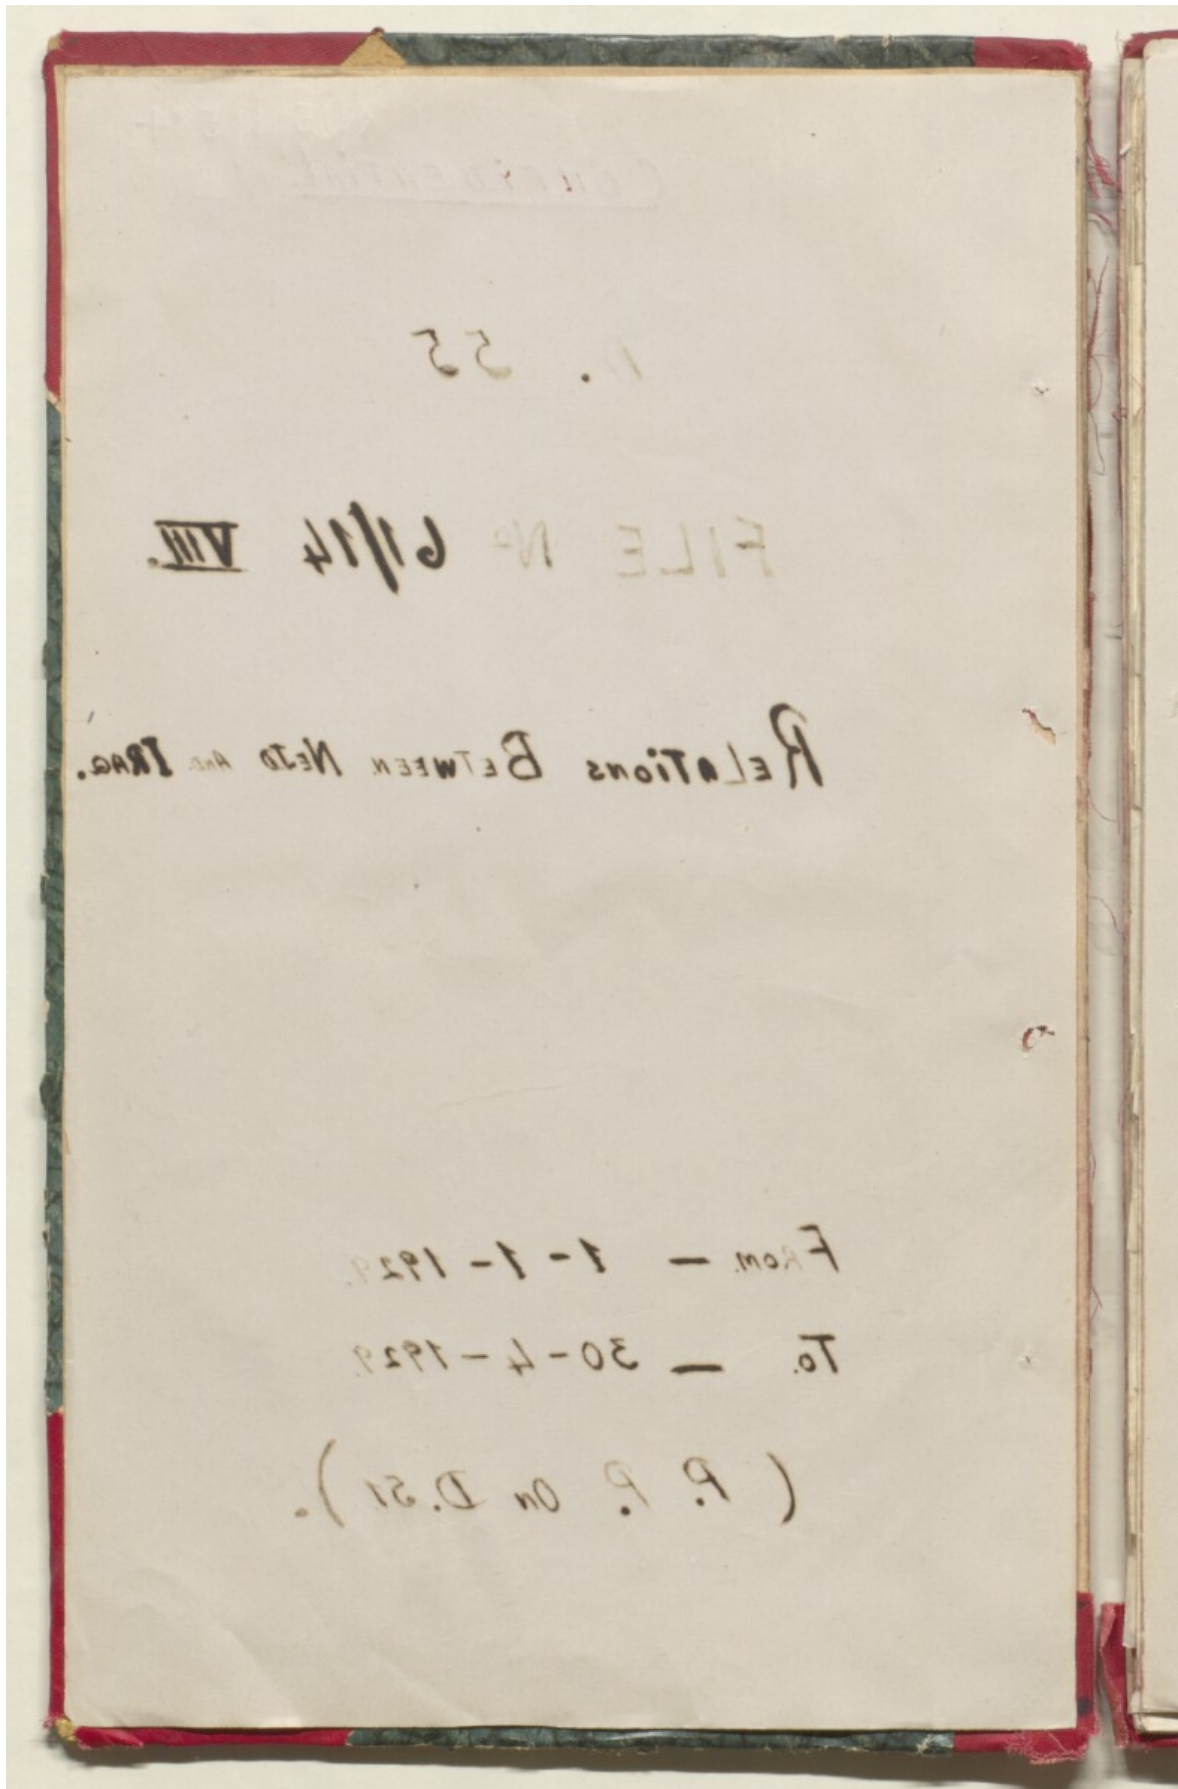 CONFIDENTIAL
. 55
FILE No 61/14 VIII.
RELATIONS BETWEEN NEJD AND IRAQ.
FROM. — 1-1-1929.
To. — 30-4-1929.
(P. P. On D.51).